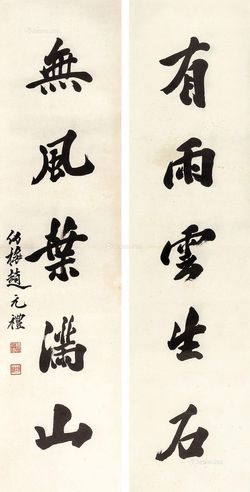 有雨雲生石
無風葉滿山
幼梅趙元禮